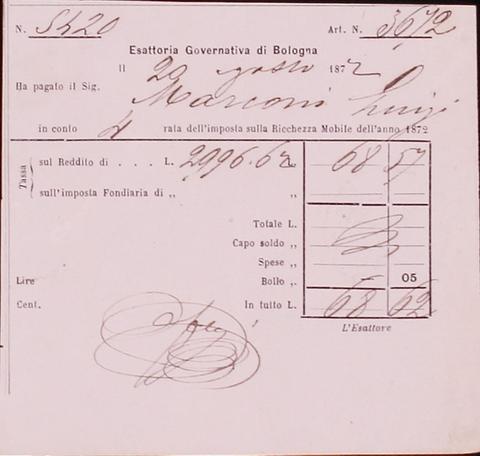 N. 5420 Art. N. 3672
Esattoria Governativa di Bologna
Il 20 agosto 1872
Ha pagato il Sig. Marconi Luigi
in conto 4 rata dell'imposta sulla Ricchezza Mobile dell'anno 1872
Tassa
sul Reddito di . . . . L. 2996.62 „ 68 57
sull'imposta Fondiaria di „ „
Totale L.
Capo soldo „
Spese „
Lire Bollo „ — 05
Cent. In tutto L. 68 62
L'Esattore